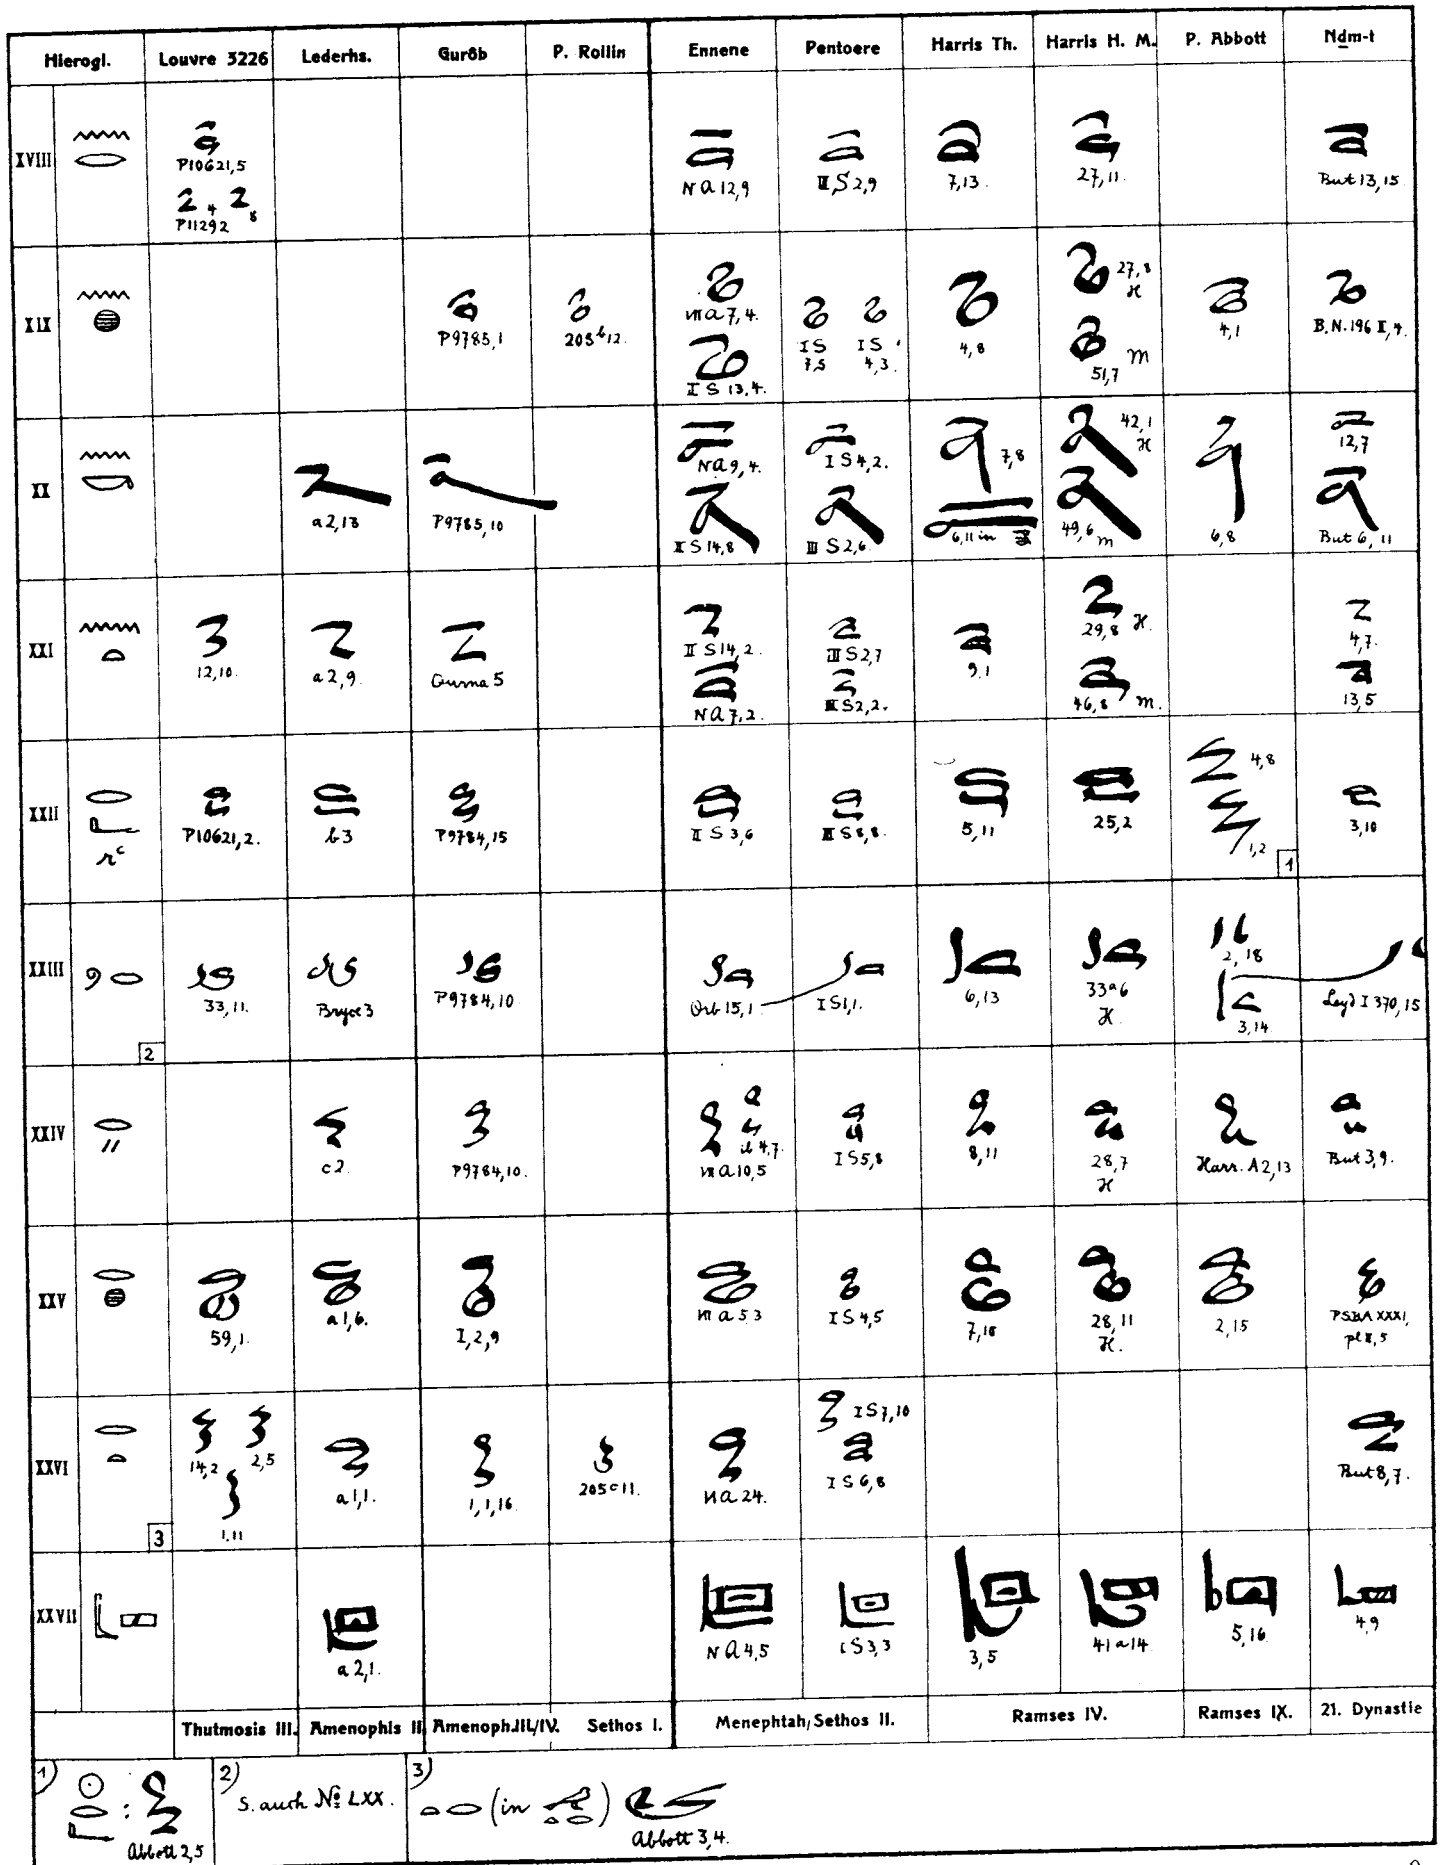 Hierogl. Louvre 3226 Lederhs. Gurôb P. Rollin Ennene Pentoere Harris Th. Harris H. M. P. Abbott Nḏm-t
XVIII
P10621,5
4 8
P11292
Na 12,9
III S 2,9
7,13.
27,11.
But 13,15
XIX
P9785,1
205b12.
VII a 7,4.
I S 13,4.
I S 7,5
I S 4,3.
4,8
27,8 H
51,7 M
4,1
B.N. 196 II, 4.
XX
a 2,13
P9785,10
Na 9,4.
II S 14,8
I S 4,2.
III S 2,6.
7,8
6,11 in
42,1 H
49,6 m
6,8
12,7
But 6, 11
XXI
12,10.
a 2,9.
Gurna 5
II S 14,2.
Na 7,2.
III S 2,7
III S 2,2.
9,1
29,8 H.
46,8 m.
4,7.
13,5
XXII
rꜥ
P10621,2.
b3
P9784,15
II S 3,6
III S 8,8.
5,11
25,2
4,8
1,2
1
3,10
XXIII
2
33,11.
Bryce 3
P9784,10.
Orb 15,1.
I S 1,1.
6,13
33a6
H.
2, 18
3,14
Leyd I 370,15
XXIV
c2.
P9784,10.
4,7.
VII a 10,5
I S 5,8
8,11
28,7
H
Harr. A 2,13
But 3,9.
XXV
59,1.
a 1,6.
I,2,9
VII a 5 3
I S 4,5
7,18
28,11
H.
2,15
PSBA XXXI,
pl 8,5
XXVI
3
14,2
2,5
1,11
a 1,1.
1,1,16.
205c11.
Na 24.
I S 7,10
I S 6,8
But 8,7.
XXVII
a 2,1.
Na 4,5
I S 3,3
3,5
41a14.
5,16.
4,9
Thutmosis III. Amenophis II Amenoph.III./IV. Sethos I. Menephtah/Sethos II. Ramses IV. Ramses IX. 21. Dynastie
1) : Abbott 2,5
2) S. auch No LXX.
3) (in ) Abbott 3,4.